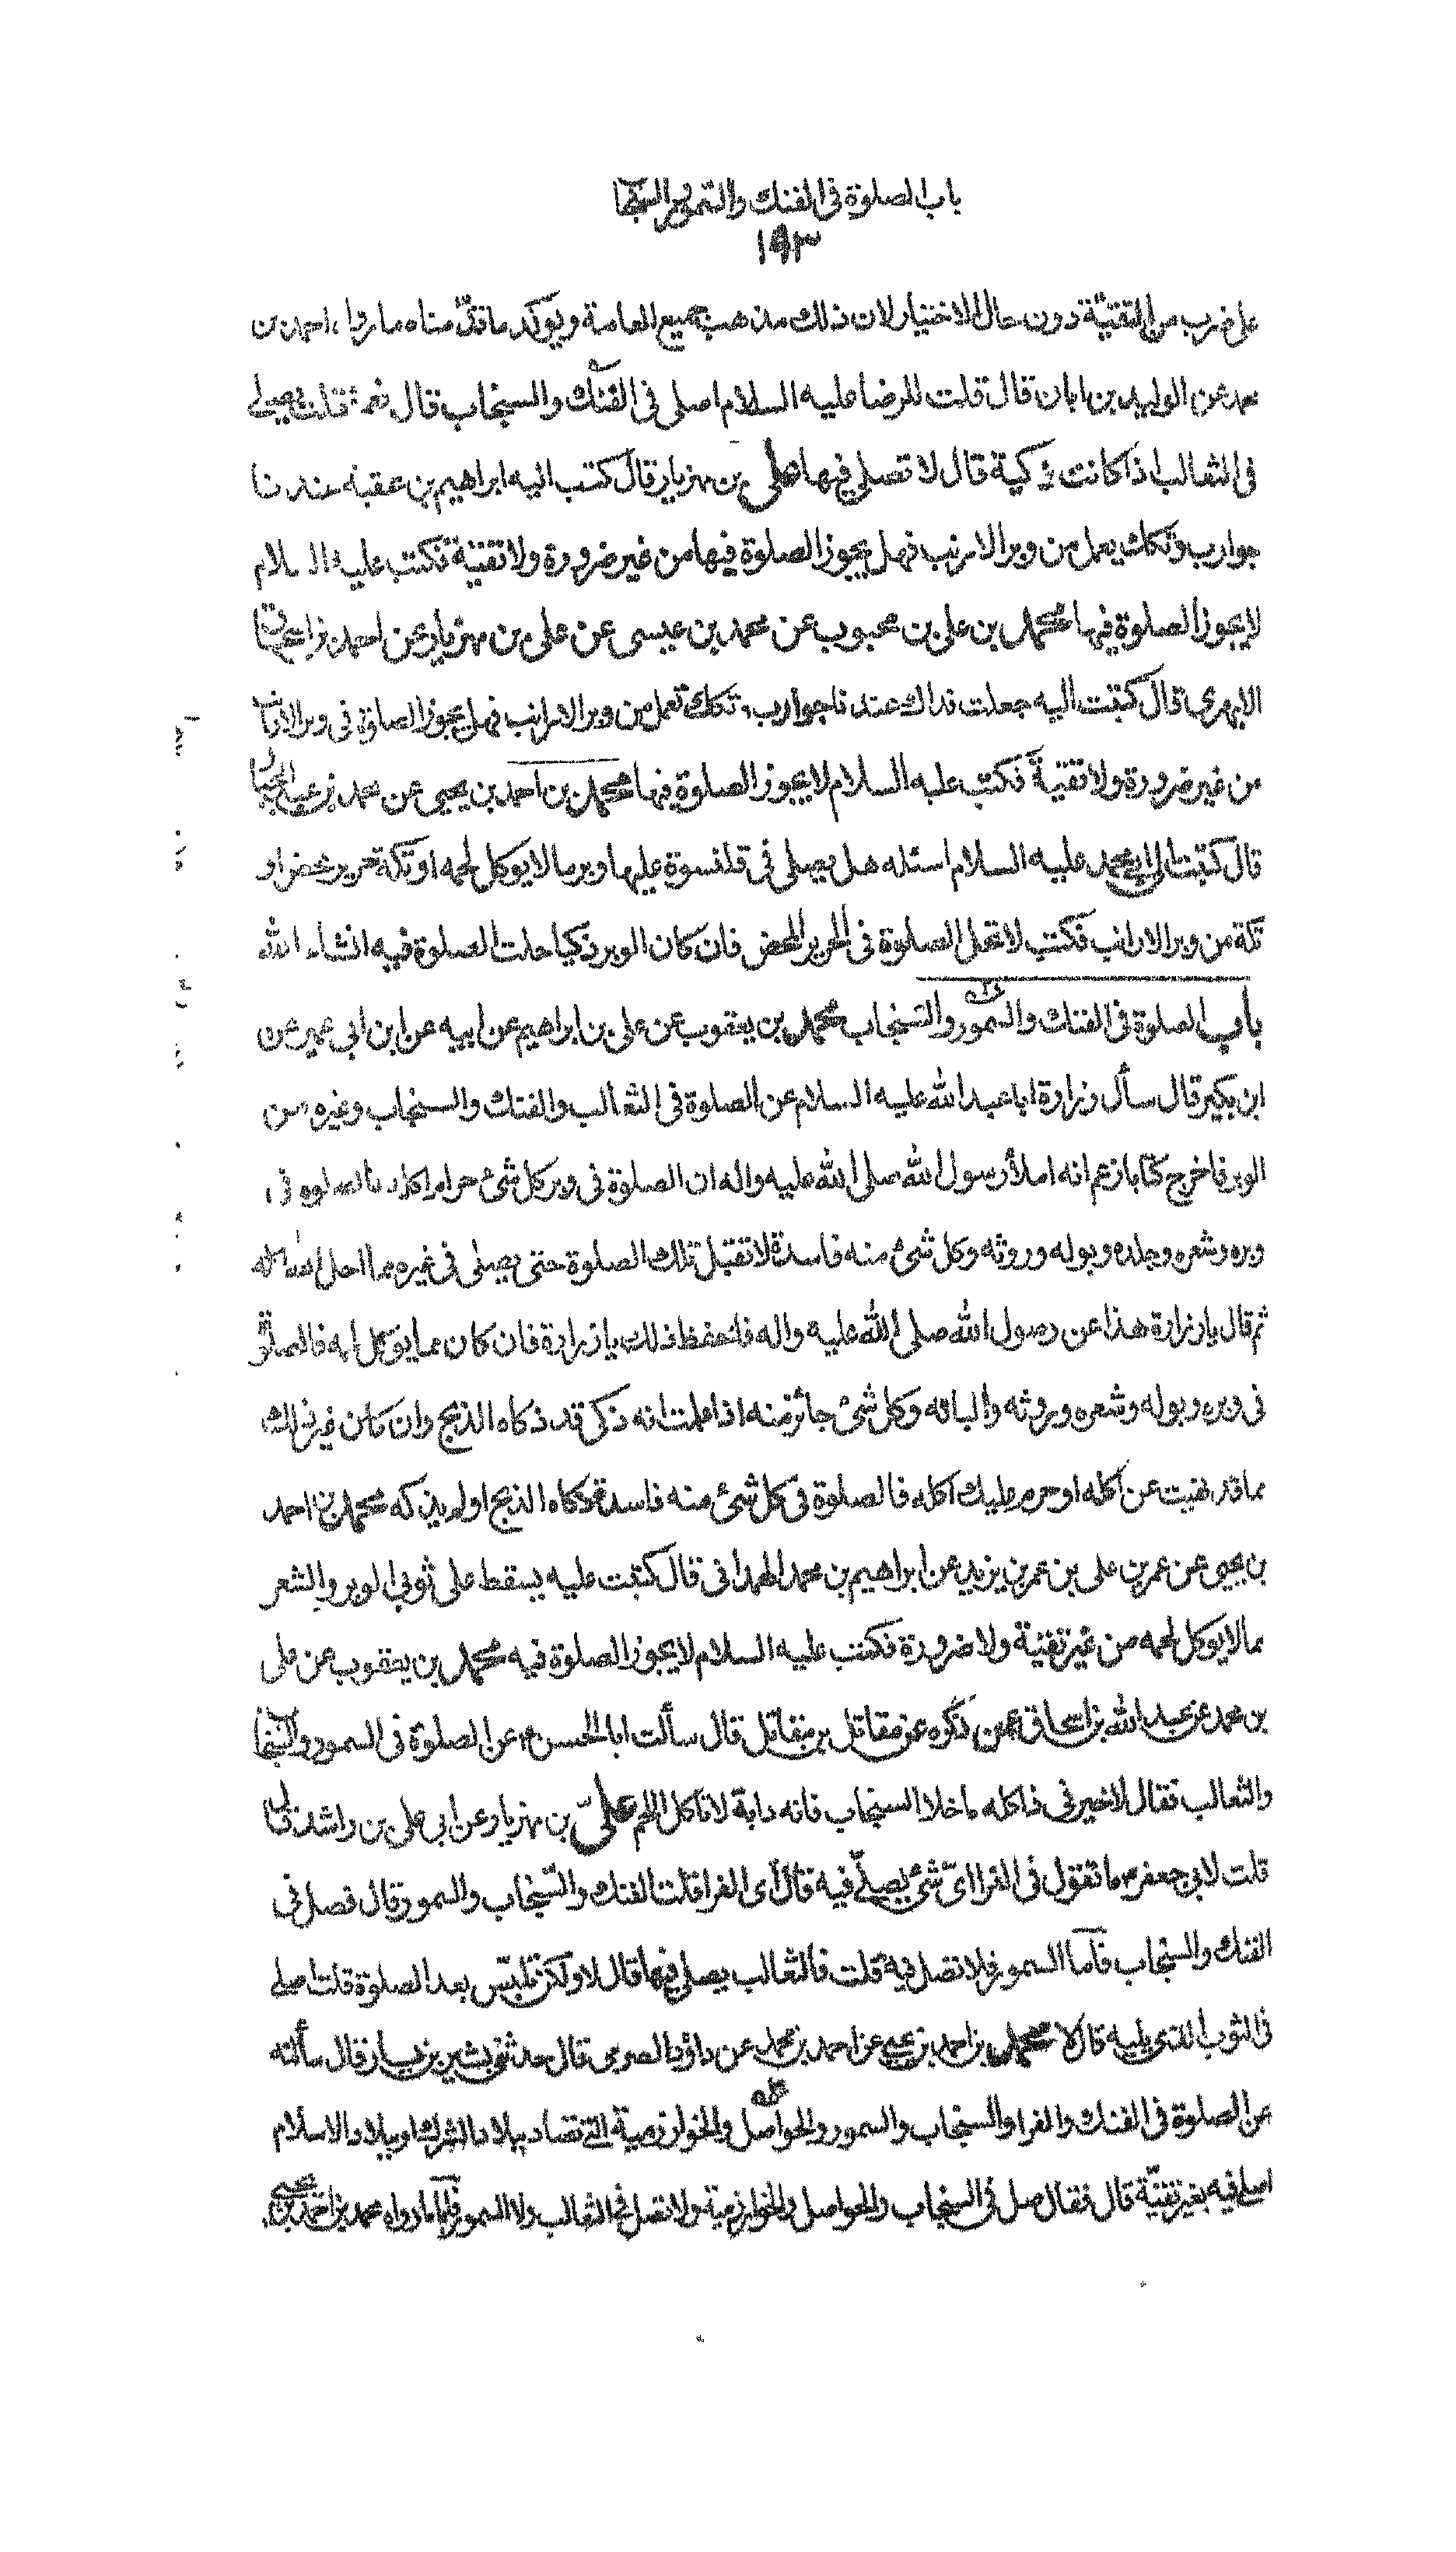 باب الصلوة فى الفنك والسمور والسنجاب
١٩٣
على ضرب من التقيّة دون حال الاختيار لان ذلك مذهب جميع العامة ويؤكد ما قدّمناه ما رواه احمد بن
محمد عن الوليد بن ابان قال قلت للرضا عليه السلام اصلى فى الفنك والسنجاب قال نعم فقلت يصلى
فى الثعالب اذا كانت ذكية قال لا تصلى فيها على بن مهزيار قال كتب اليه ابراهيم بن عقبة عندنا
جوارب وتكك يعمل من وبر الارنب فهل يجوز الصلوة فيها من غير ضرورة ولا تقيّة فكتب عليه السلام
لا يجوز الصلوة فيها محمد بن على بن محبوب عن محمد بن عيسى عن على بن مهزيار عن احمد بن اسحاق
الابهرى قال كتبت اليه جعلت فداك عندنا جوارب وتكك تعمل من وبر الارانب فهل يجوز الصلوة فى وبر الارانب
من غير ضرورة ولا تقيّة فكتب عليه السلام لا يجوز الصلوة فيها محمد بن احمد بن يحيى عن محمد بن عبد الجبار
قال كتبت الى ابى محمد عليه السلام اسئله هل يصلى فى قلنسوة عليها وبر ما لا يوكل لحمه او تكة حرير محض او
تكة من وبر الارانب فكتب لا تحل الصلوة فى الحرير المحض فان كان الوبر ذكيا حلت الصلوة فيه انشاء الله
باب الصلوة فى الفنك والسمور والسنجاب محمد بن يعقوب عن على بن ابراهيم عن ابيه عن ابن ابى عمير عن
ابن بكير قال سأل زرارة ابا عبد الله عليه السلام عن الصلوة فى الثعالب والفنك والسنجاب وغيره من
الوبر فاخرج كتابا زعم انه املأ رسول الله صلى الله عليه واله ان الصلوة فى وبر كل شئ حرام اكله فالصلوة فى
وبره وشعره وجلده وبوله وروثه وكل شئ منه فاسدة لا تقبل تلك الصلوة حتى يصلى فى غيره مما احل الله اكله
ثم قال يا زرارة هذا عن رسول الله صلى الله عليه واله فاحفظ ذلك يا زرارة فان كان مما يؤكل لحمه فالصلوة
فى وبره وبوله وشعره وروثه والبانه وكل شئ جائز منه اذا علمت انه ذكى قد ذكاه الذبح وان كان غير ذلك
مما قد نهيت عن اكله او حرم عليك اكله فالصلوة فى كل شئ منه فاسدة ذكاه الذبح او لم يذكه محمد بن احمد
بن يحيى عن عمر بن على بن عمر بن يزيد عن ابراهيم بن محمد الهمدانى قال كتبت عليه يسقط على ثوبى الوبر والشعر
مما لا يوكل لحمه من غير تقيّة ولا ضرورة فكتب عليه السلام لا يجوز الصلوة فيه محمد بن يعقوب عن على
بن محمد عن عبد الله بن اسحاق عمن ذكره عن مقاتل بن مقاتل قال سألت ابا الحسن ع عن الصلوة فى السمور والسنجاب
والثعالب فقال لا خير فى ذا كله ما خلا السنجاب فانه دابة لا تاكل اللحم على بن مهزيار عن ابى على بن راشد قال
قلت لابى جعفر ع ما تقول فى الفرا اىّ شئ يصلّى فيه قال اى الفرا قلت الفنك والسنجاب والسمور قال فصل فى
الفنك والسنجاب فاما السمور فلا تصل فيه قلت فالثعالب يصلى فيها قال لا ولكن تلبس بعد الصلوة قلت اصلى
فى الثوب الذى يليه قال لا محمد بن احمد بن يحيى عن احمد بن محمد عن داؤد الصرمى قال حدثنى بشير بن يسار قال سألته
عن الصلوة فى الفنك والفرا والسنجاب والسمور والحواصل والخوارزمية التى تصاد ببلاد الشرك او ببلاد الاسلام
اصلى فيه بغير تقيّة قال فقال صل فى السنجاب والحواصل والخوارزمية ولا تصل فى الثعالب ولا السمور فاما ما رواه محمد بن احمد بن يحيى